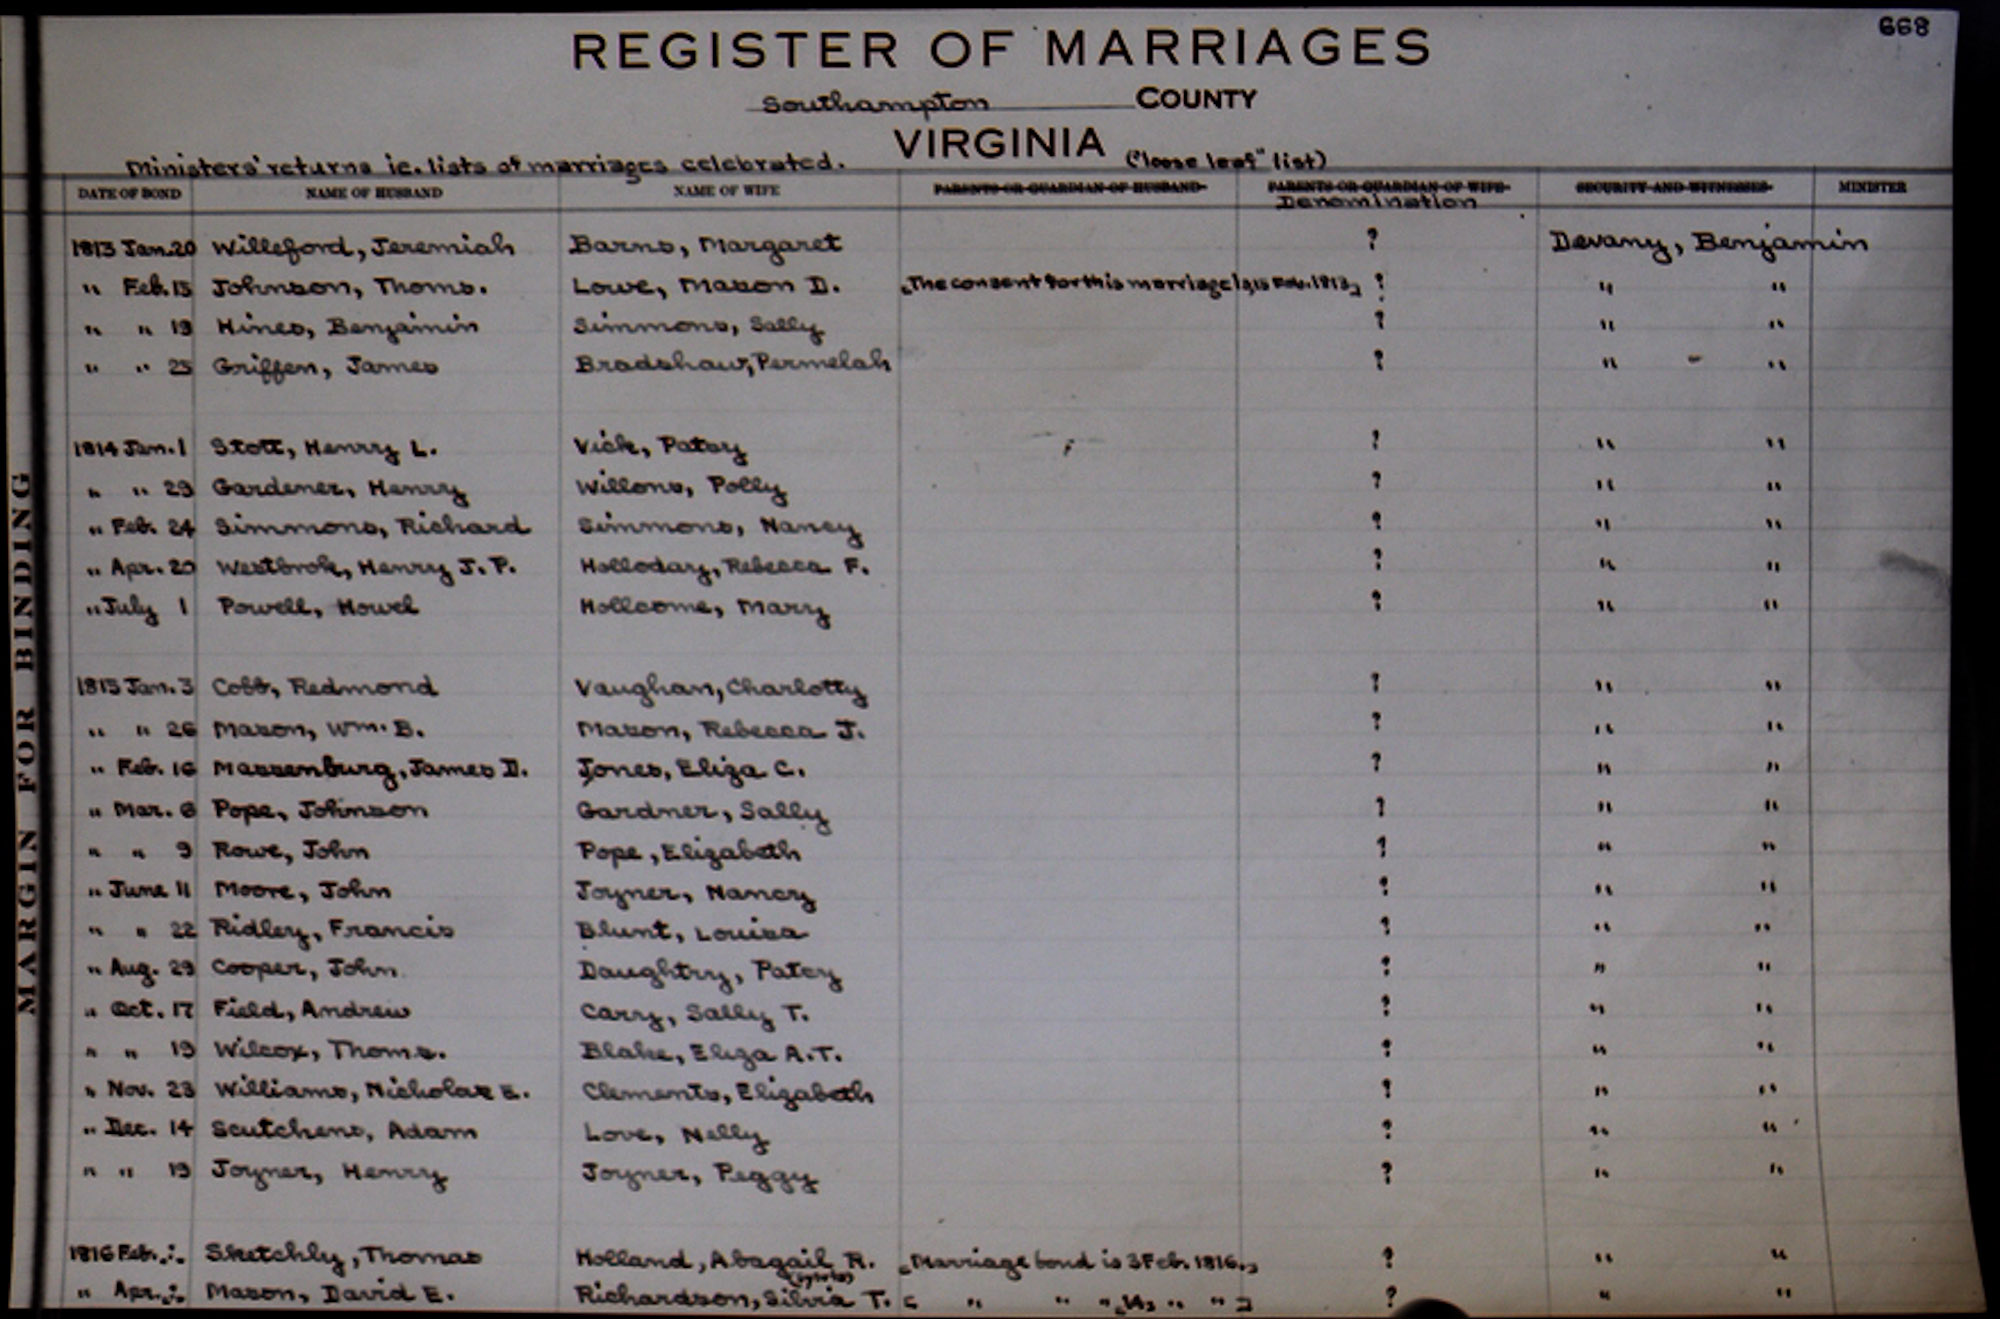 668
REGISTER OF MARRIAGES
Southampton COUNTY
VIRGINIA ("loose leaf" list)
Ministers' returns ie. lists of marriages celebrated.
DATE OF BOND NAME OF HUSBAND NAME OF WIFE PARENTS OR GUARDIAN OF HUSBAND PARENTS OR GUARDIAN OF WIFE SECURITY AND WITNESSES MINISTER
Denomination
1813 Jan. 20 Willeford, Jeremiah Barns, Margaret ? Devany, Benjamin
" Feb. 15 Johnson, Thoms. Lowe, Mason D. [The consent for this marriage is 15 Feb. 1813] ? " "
" " 19 Hines, Benjamin Simmons, Sally ? " "
" " 25 Griffen, James Bradshaw, Permelah ? " "
1814 Jan. 1 Stott, Henrry L. Vick, Patsy ? " "
" " 29 Gardener, Henrry Willons, Polly ? " "
" Feb. 24 Simmons, Richard Simmons, Nancy ? " "
" Apr. 20 Westbrok, Henrry J. P. Holloday, Rebecca F. ? " "
" July 1 Powell, Howel Hollcome, Marry ? " "
1815 Jan. 3 Cobb, Redmond Vaughan, Charlotty ? " "
" " 26 Mason, Wm. B. Mason, Rebecca J. ? " "
" Feb. 16 Massenburg, James D. Jones, Eliza C. ? " "
" Mar. 6 Pope, Johnson Gardner, Sally ? " "
" " 9 Rowe, John Pope, Elizabeth ? " "
" June 11 Moore, John Joyner, Nancy ? " "
" " 22 Ridley, Francis Blunt, Louisa ? " "
" Aug. 29 Cooper, John Daughtry, Patcy ? " "
" Oct. 17 Field, Andrew Carry, Sally T. ? " "
" " 19 Wilcox, Thoms. Blake, Eliza A. T. ? " "
" Nov. 23 Williams, Nicholas E. Clements, Elizabeth ? " "
" Dec. 14 Scutchens, Adam Love, Nelly ? " "
" " 19 Joyner, Henry Joyner, Peggy ? " "
1816 Feb. Sketchly, Thomas Holland, Abagail R. [Marriage bond is 3 Feb. 1816.] ? " "
" Apr. Mason, David E. Richardson, Silvia T. [ " " " " " ] ? " "
MARGIN FOR BINDING